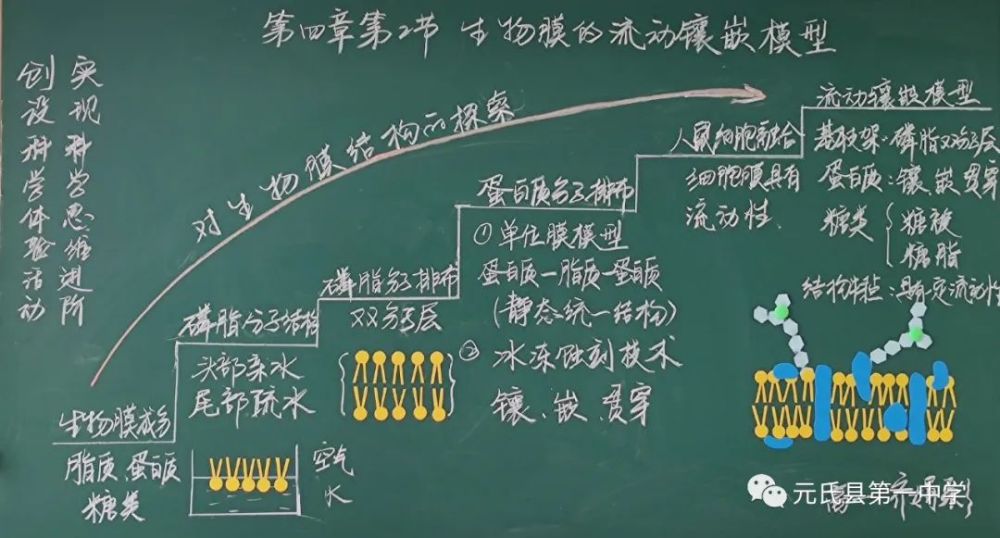 第四章第2节 生物膜的流动镶嵌模型
创设科学体验活动
实现科学思维进阶
对生物膜结构的探索
生物膜成分
脂质、蛋白质
糖类
磷脂分子结构
头部亲水
尾部疏水
空气
水
磷脂分子排布
双分子层
蛋白质分子排布
①单位膜模型
蛋白质—脂质—蛋白质
(静态统一结构)
②冰冻蚀刻技术
镶、嵌、贯穿
人鼠细胞融合
细胞膜具有
流动性
流动镶嵌模型
基本支架:磷脂双分子层
蛋白质:镶、嵌、贯穿
糖类
糖被
糖脂
结构特点:具有一定流动性
元氏县第一中学